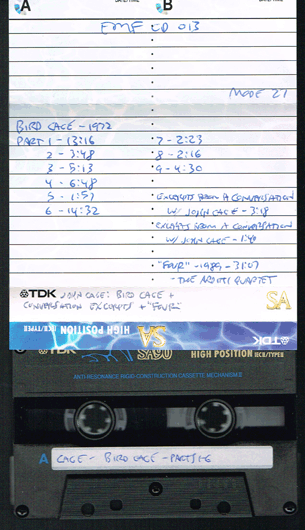 A DATE/TIME
B DATE/TIME
EMF CD 013
MODE 27
BIRD CAGE - 1972
PART 1 - 13:16
2 - 3:48
3 - 5:13
4 - 6:48
5 - 1:57
6 - 14:32
7 - 2:23
8 - 2:16
9 - 4:30
EXCERPTS FROM A CONVERSATION
W/ JOHN CAGE - 3:18
EXCERPTS FROM A CONVERSATION
W/ JOHN CAGE - 1:40
"FOUR" - 1989 - 31:07
- THE ARDITTI QUARTET
TDK JOHN CAGE: BIRD CAGE +
CONVERSATION EXCERPTS + "FOUR"
SA
HIGH POSITION IEC II/TYPE II
SA
TDK
TDK
SA90
HIGH POSITION IEC II/TYPE II
ANTI-RESONANCE HIGH-CONSTRUCTION CASSETTE MECHANISM
A CAGE - BIRD CAGE - PARTS 1-6